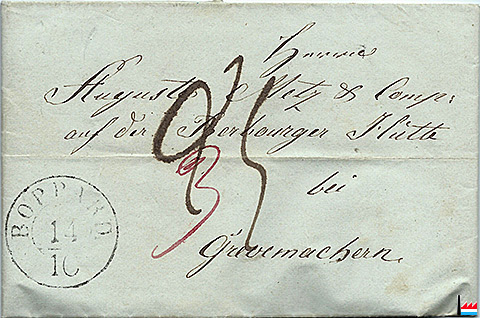 Herrn
August Metz & Comp:
auf der Berbourger Hütte
bei
Grevemachern.
3
BOPPARD
14
10